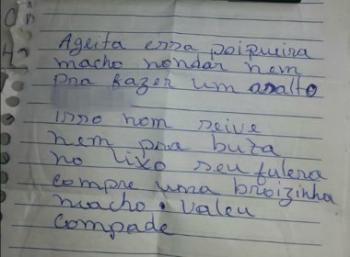 Ageita essa poiqueira
macho nondar nem
pra fazer um asalto
isso nom seive
nem pra buta
no lixo seu fulera
compre uma broizinha
macho. valeu
compade